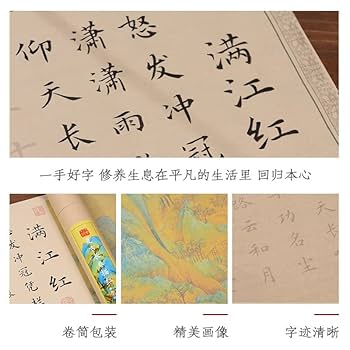 满江红
怒发冲冠
潇潇雨
仰天长
一手好字 修养生息在平凡的生活里 回归本心
满江红
发冲冠凭栏
天长
功名尘
路云和月
卷筒包装
精美画像
字迹清晰